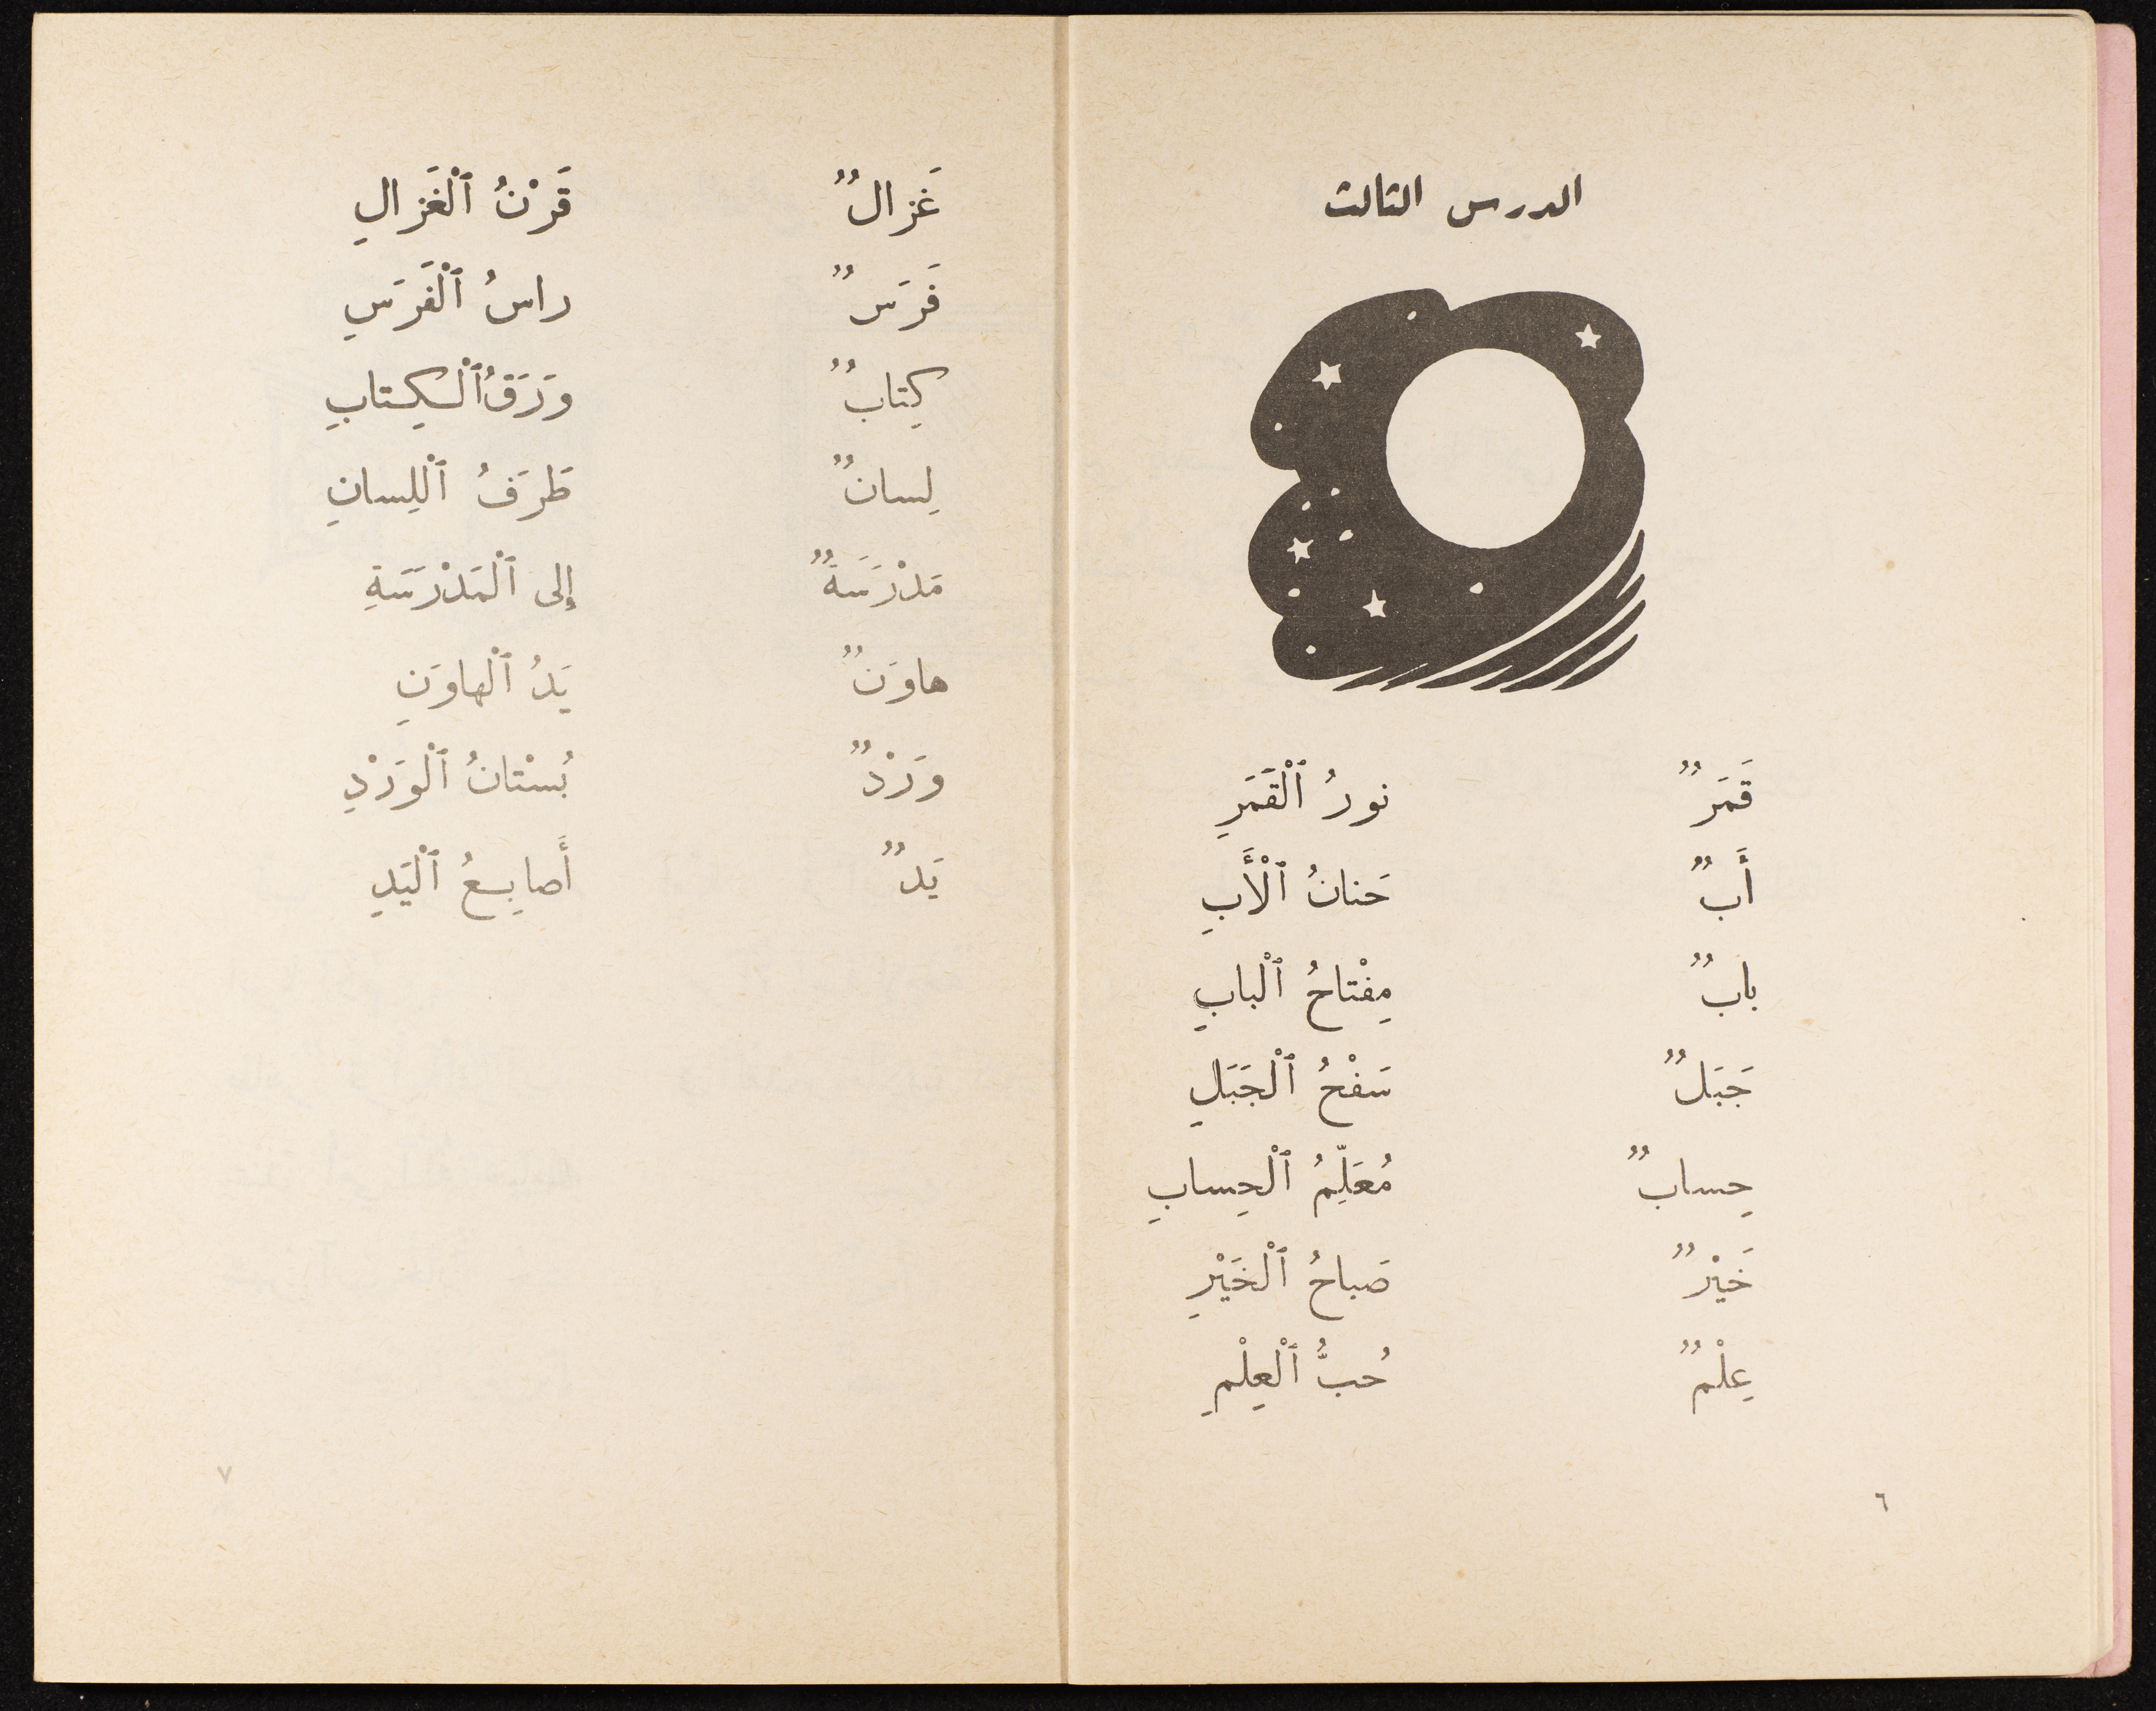 الدرس الثالث
قَمَرٌ نورُ ٱلْقَمَرِ
أَبٌ حَنانُ ٱلْأَبِ
بابٌ مِفْتاحُ ٱلْبابِ
جَبَلٌ سَفْحُ ٱلْجَبَلِ
حِسابٌ مُعَلِّمُ ٱلْحِسابِ
خَيْرٌ صَباحُ ٱلْخَيْرِ
عِلْمٌ حُبُّ ٱلْعِلْمِ
٦
غَزالٌ قَرْنُ ٱلْغَزالِ
فَرَسٌ راسُ ٱلْفَرَسِ
كِتابٌ وَرَقُ ٱلْكِتابِ
لِسانٌ طَرَفُ ٱلْلِسانِ
مَدْرَسَةٌ إِلى ٱلْمَدْرَسَةِ
هاوَنٌ يَدُ ٱلْهاوَنِ
وَرْدٌ بُسْتانُ ٱلْوَرْدِ
يَدٌ أَصابِعُ ٱلْيَدِ
٧